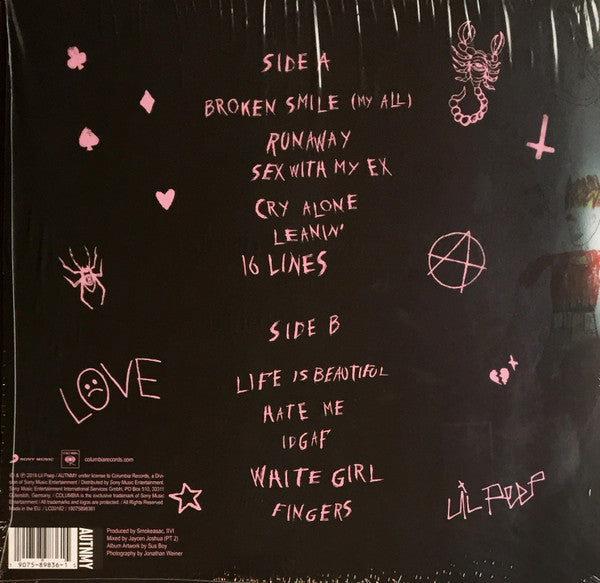 SIDE A
BROKEN SMILE (MY ALL)
RUNAWAY
SEX WITH MY EX
CRY ALONE
LEANIN'
16 LINES
SIDE B
LIFE IS BEAUTIFUL
HATE ME
IDGAF
WHITE GIRL
FINGERS
LOVE
LIL PEEP
SONY MUSIC
columbiarecords.com
© & ℗ 2018 Lil Peep / AUTNMY under license to Columbia Records, a Divi-
sion of Sony Music Entertainment / Distributed by Sony Music Entertainment.
Sony Music Entertainment International Services GmbH, PO Box 510, 33311
Gütersloh, Germany. / COLUMBIA is the exclusive trademark of Sony Music
Entertainment / All trademarks and logos are protected. / All Rights Reserved
Made in the EU. / LC00162 / 19075898361
AUTNMY
1 9075-89836-1 5
Produced by Smokeasac, IIVI
Mixed by Jaycen Joshua (PT 2)
Album Artwork by Sus Boy
Photography by Jonathan Weiner